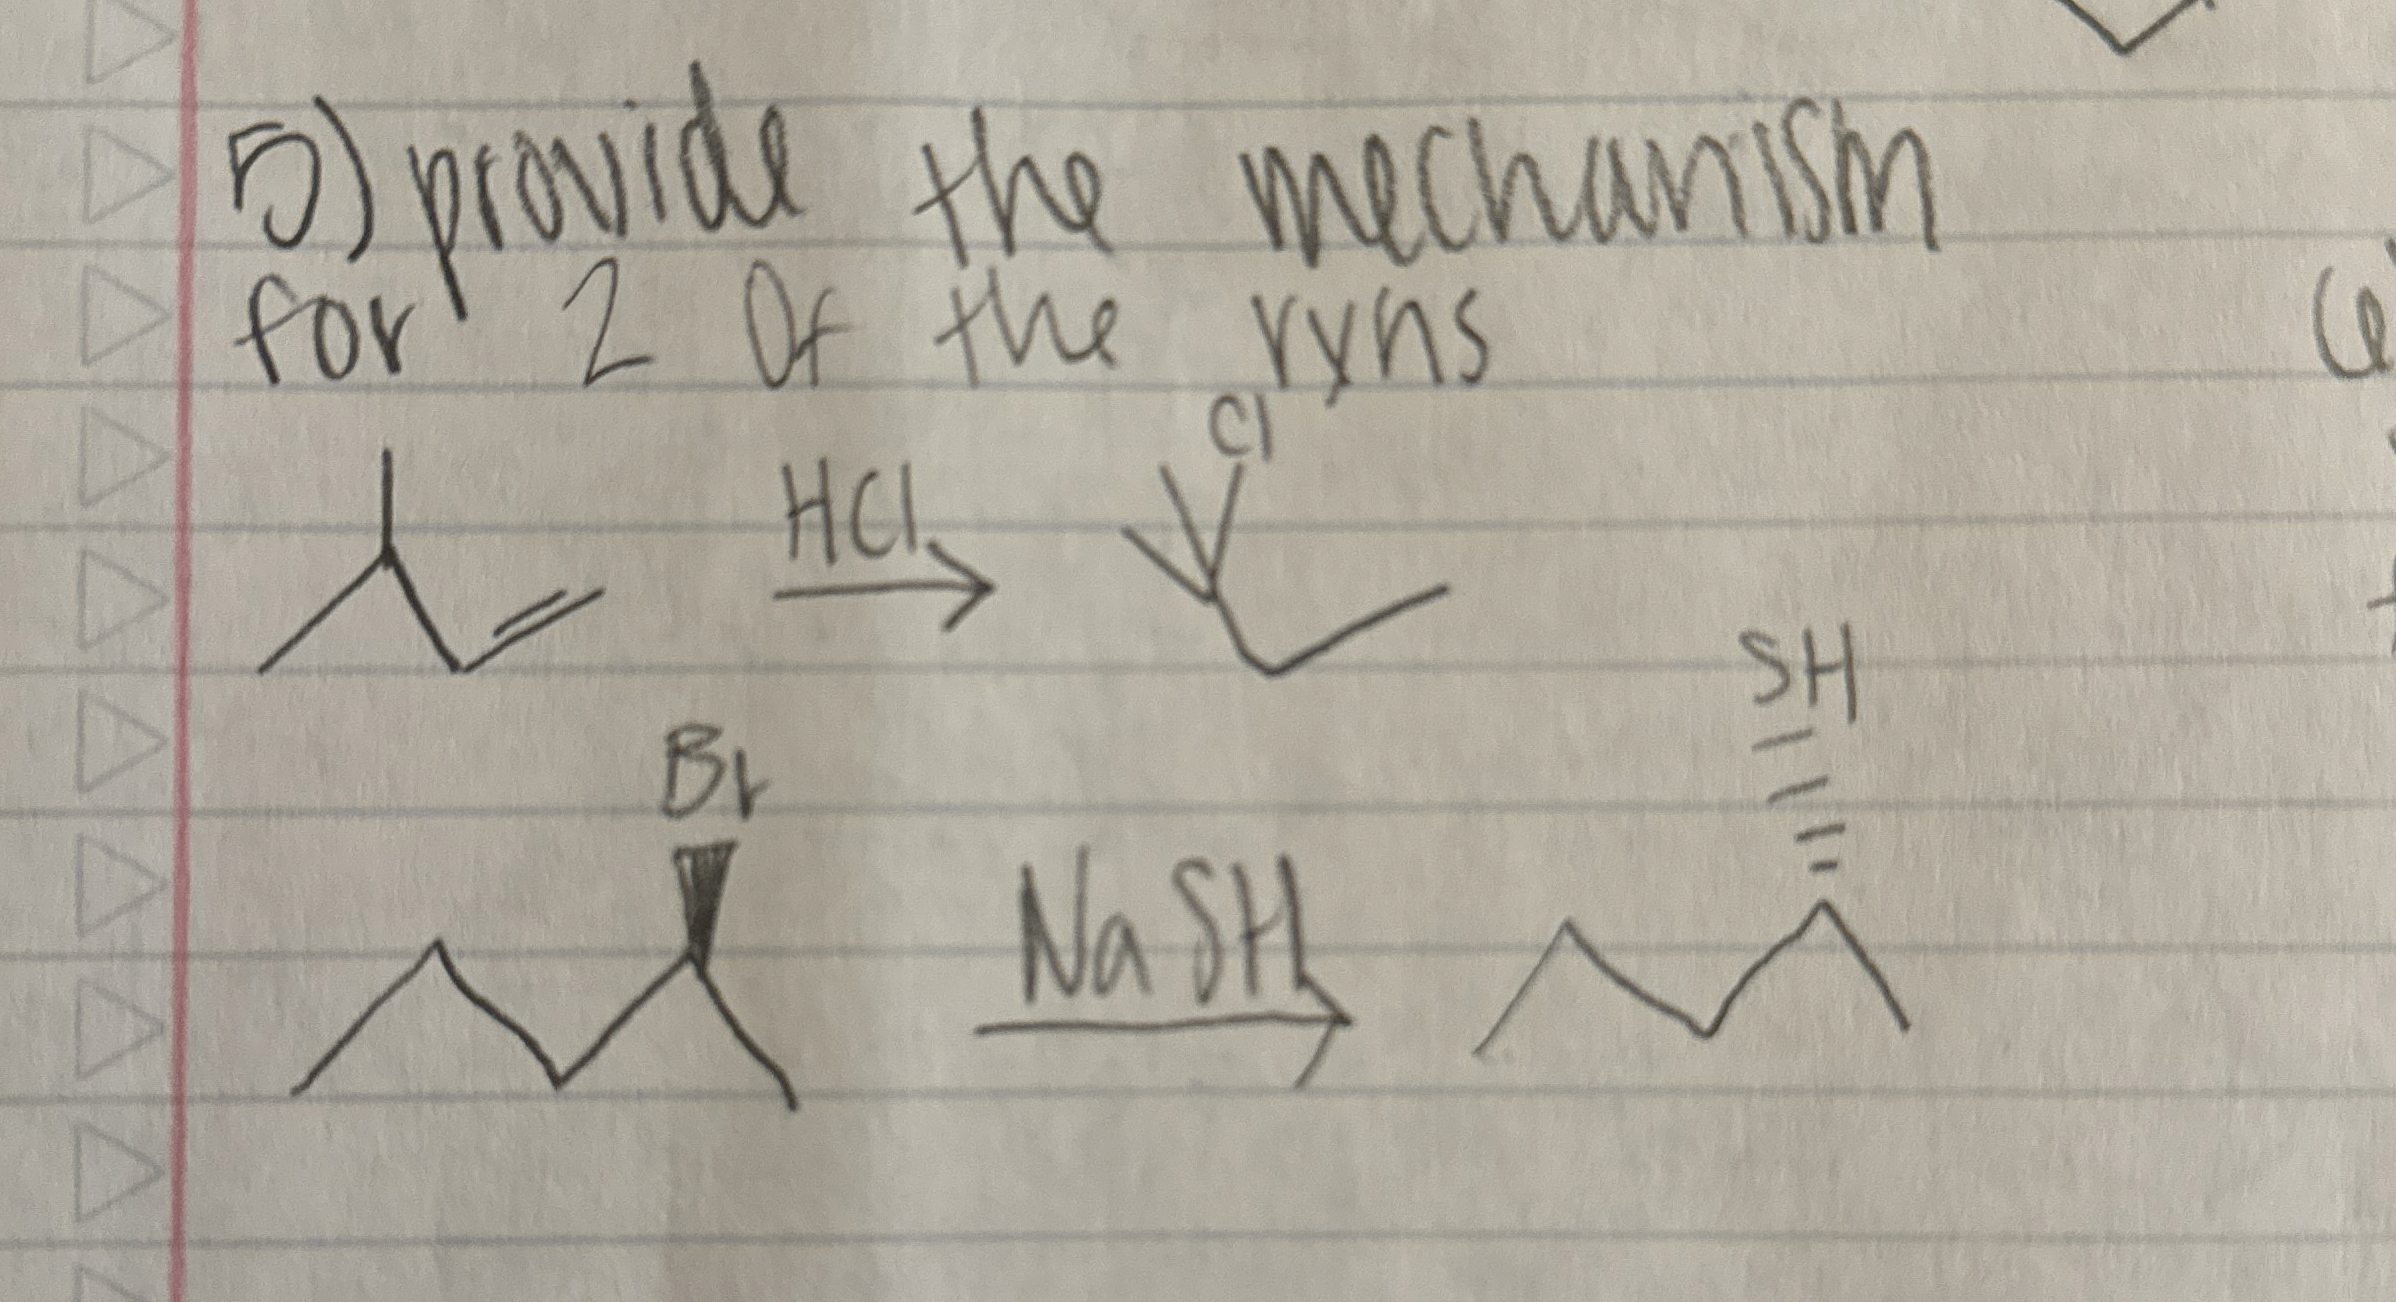 5) provide the mechanism
for 2 Of the rxns
Cl
HCl
SH
Br
NaSH